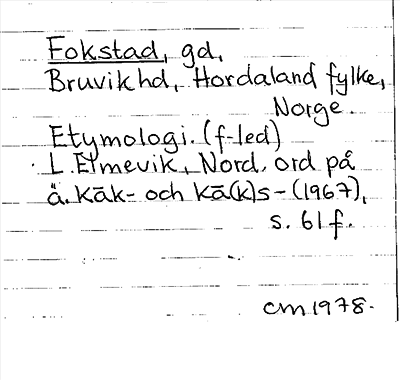 Fokstad, gd,
Bruvik hd, Hordaland fylke,
Norge.
Etymologi. (f-led)
L. Elmevik, Nord. ord på
ä. kāk- och kā(k)s- (1967),
s. 61 f.
cm 1978.